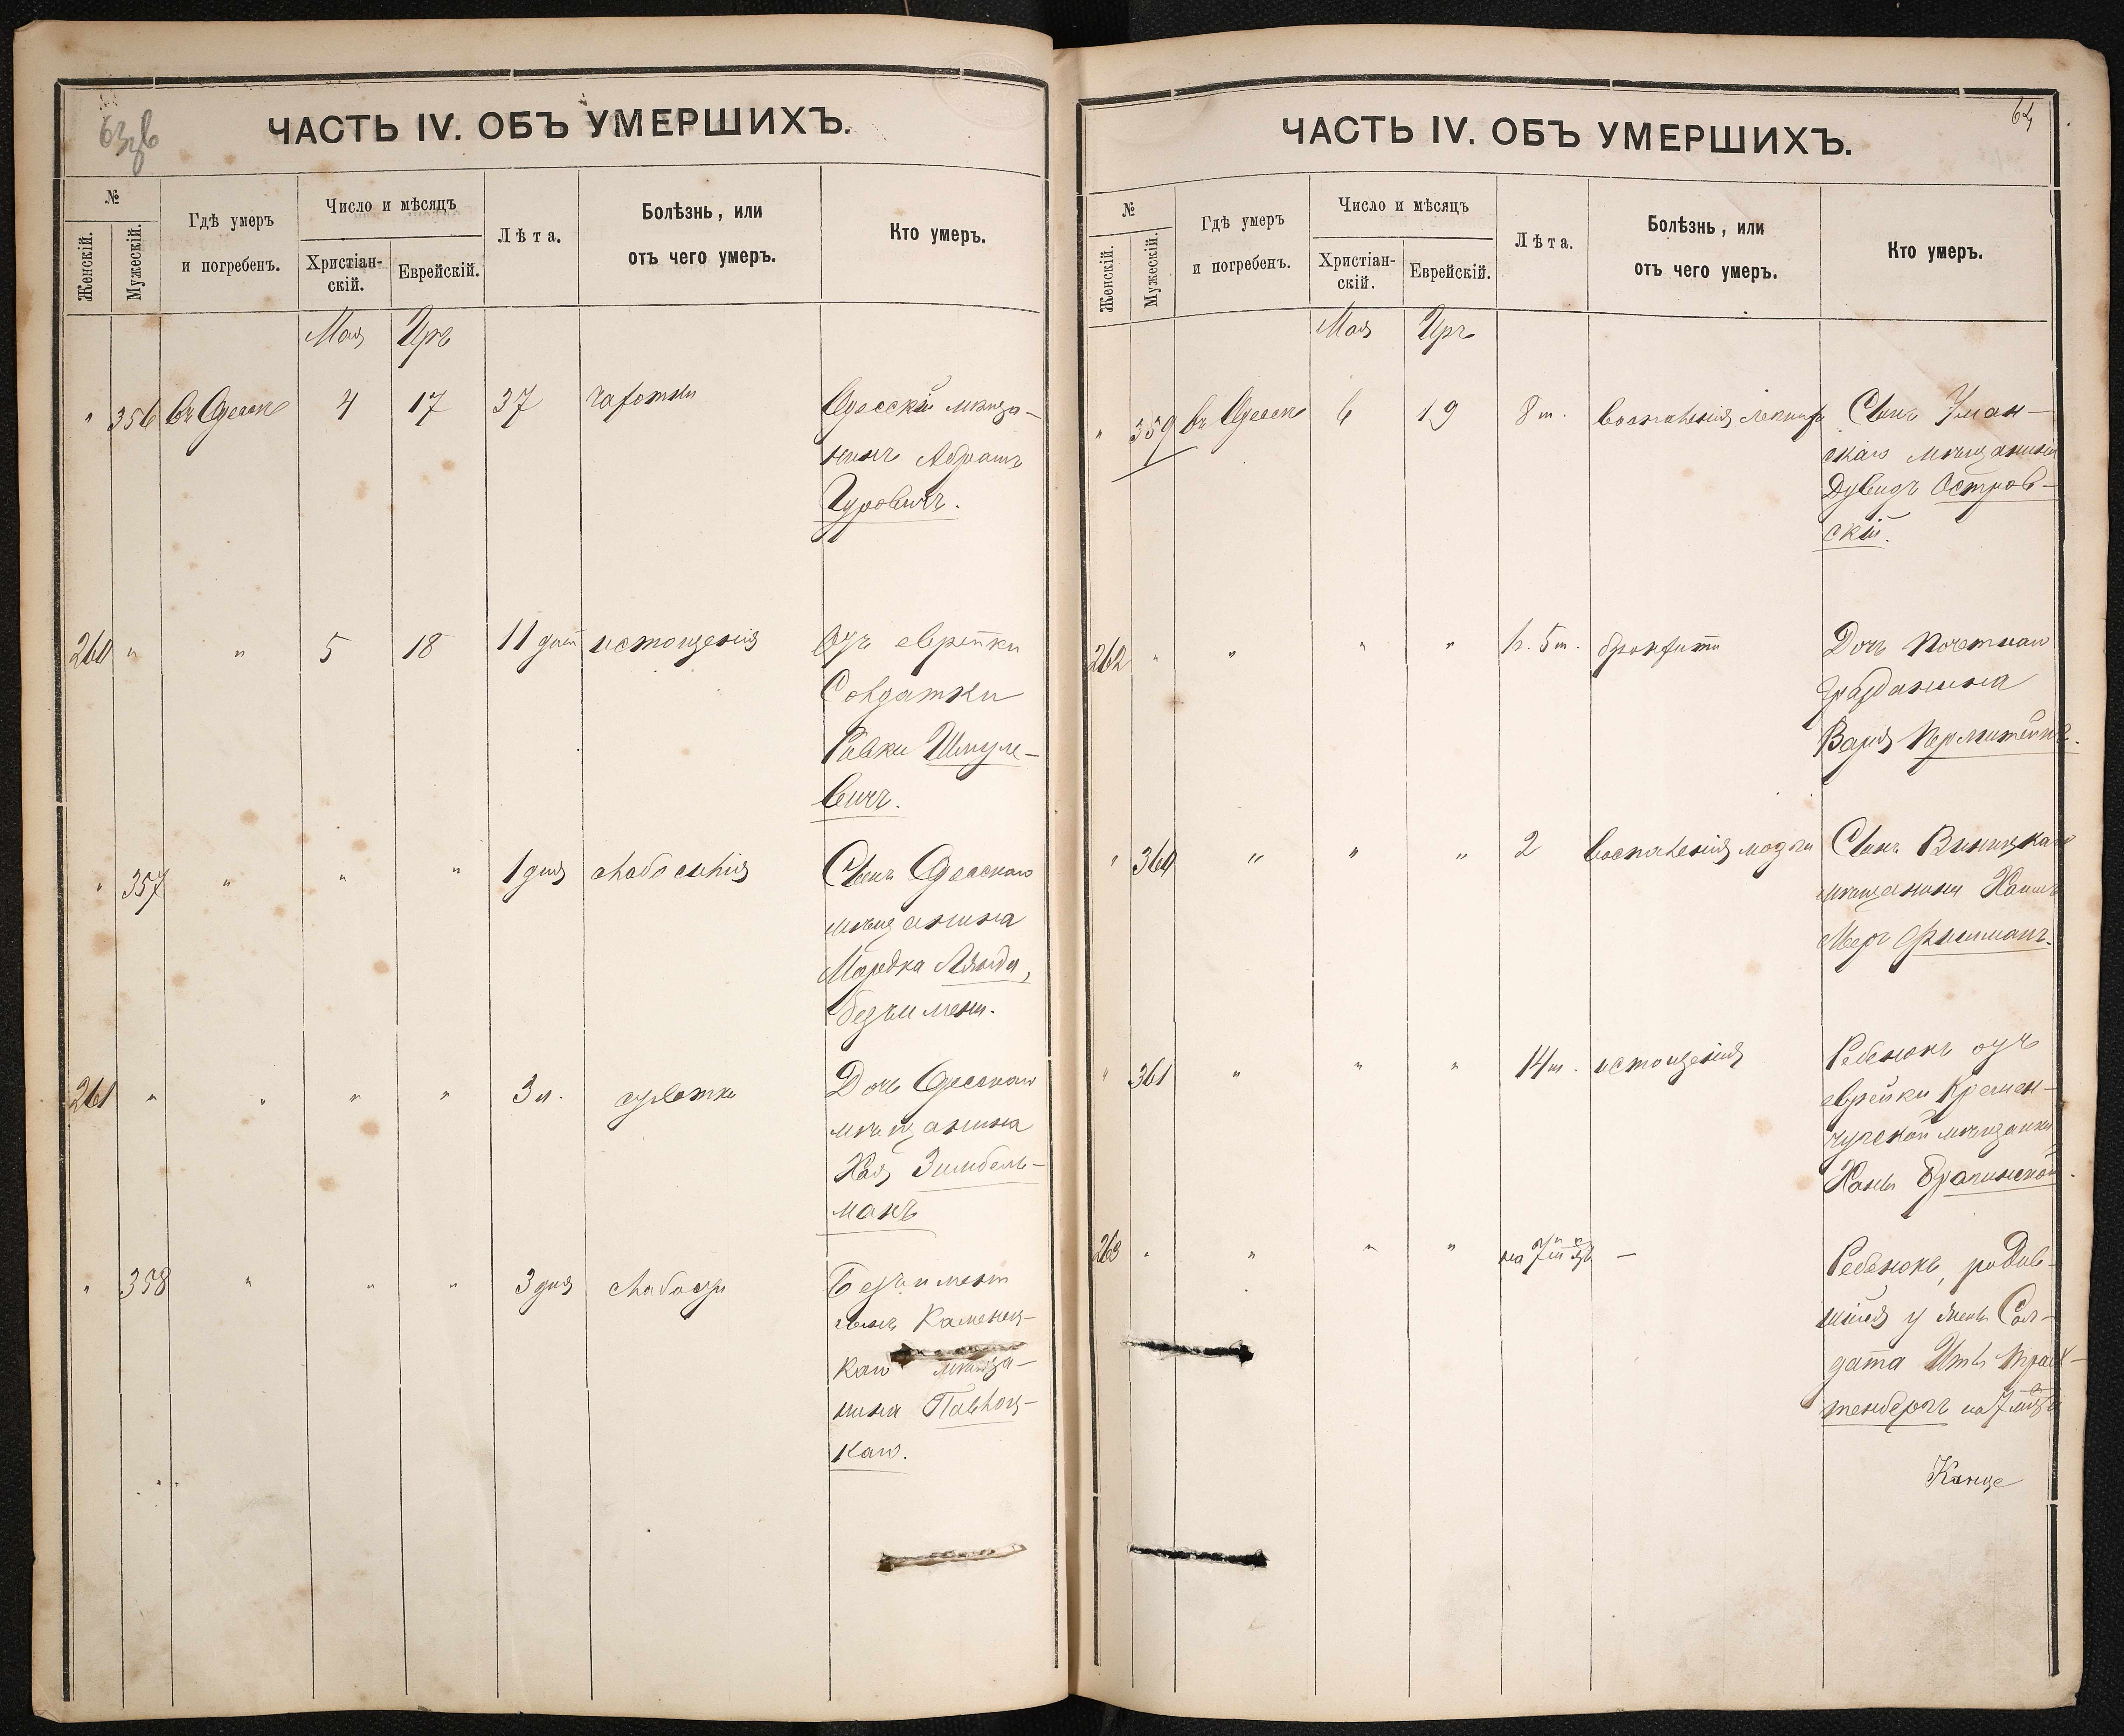 63об
ЧАСТЬ IV. ОБЪ УМЕРШИХЪ.
№
Женскій.
Мужескій.
Гдѣ умеръ
и погребенъ.
Число и мѣсяцъ
Христіан-
скій.
Еврейскій.
Лѣта.
Болѣзнь, или
отъ чего умеръ.
Кто умеръ.
Мая Иръ
" 356 въ Одессѣ 4 17 37 чахотки Одесскій мѣща-
нинъ Абрамъ
Гуровичъ.
260 " " 5 18 11 дней истощенія еврейки
Солдатки
Ривки Шмуле-
вичъ.
" 357 " " " 1 дня слабосилія Сынъ Одесскаго
мѣщанина
Мордка
безъимен.
261 " " " " 3 Дочь Одесскаго
мѣщанина
Хая Зимбель-
манъ
" 358 " " " 3 дня слабости Безъимен
сынъ Каменец-
каго мѣща-
нина Павлоц-
каго.
64
ЧАСТЬ IV. ОБЪ УМЕРШИХЪ.
№
Женскій.
Мужескій.
Гдѣ умеръ
и погребенъ.
Число и мѣсяцъ
Христіан-
скій.
Еврейскій.
Лѣта.
Болѣзнь, или
отъ чего умеръ.
Кто умеръ.
Мая Иръ
" 359 въ Одессѣ 6 19 8 м. воспаленія легкихъ Сынъ Уман-
скаго мѣщанина
Дувидъ Остров-
скій.
262 " " " " 1г. 5м. бронхита Дочь почетнаго
гражданина
Варя
" 360 " " " 2 воспаленія мозга Сынъ Винницкаго
мѣщанина Хаимъ
Меръ Фишманъ.
" 361 " " " 14м. истощенія Ребенокъ
еврейки Кремен-
чугской мѣщанки
Ханы
263 " " " " на 7м — Ребенокъ, родив-
шійся у жены Сол-
дата Иты
тенбергъ на 7